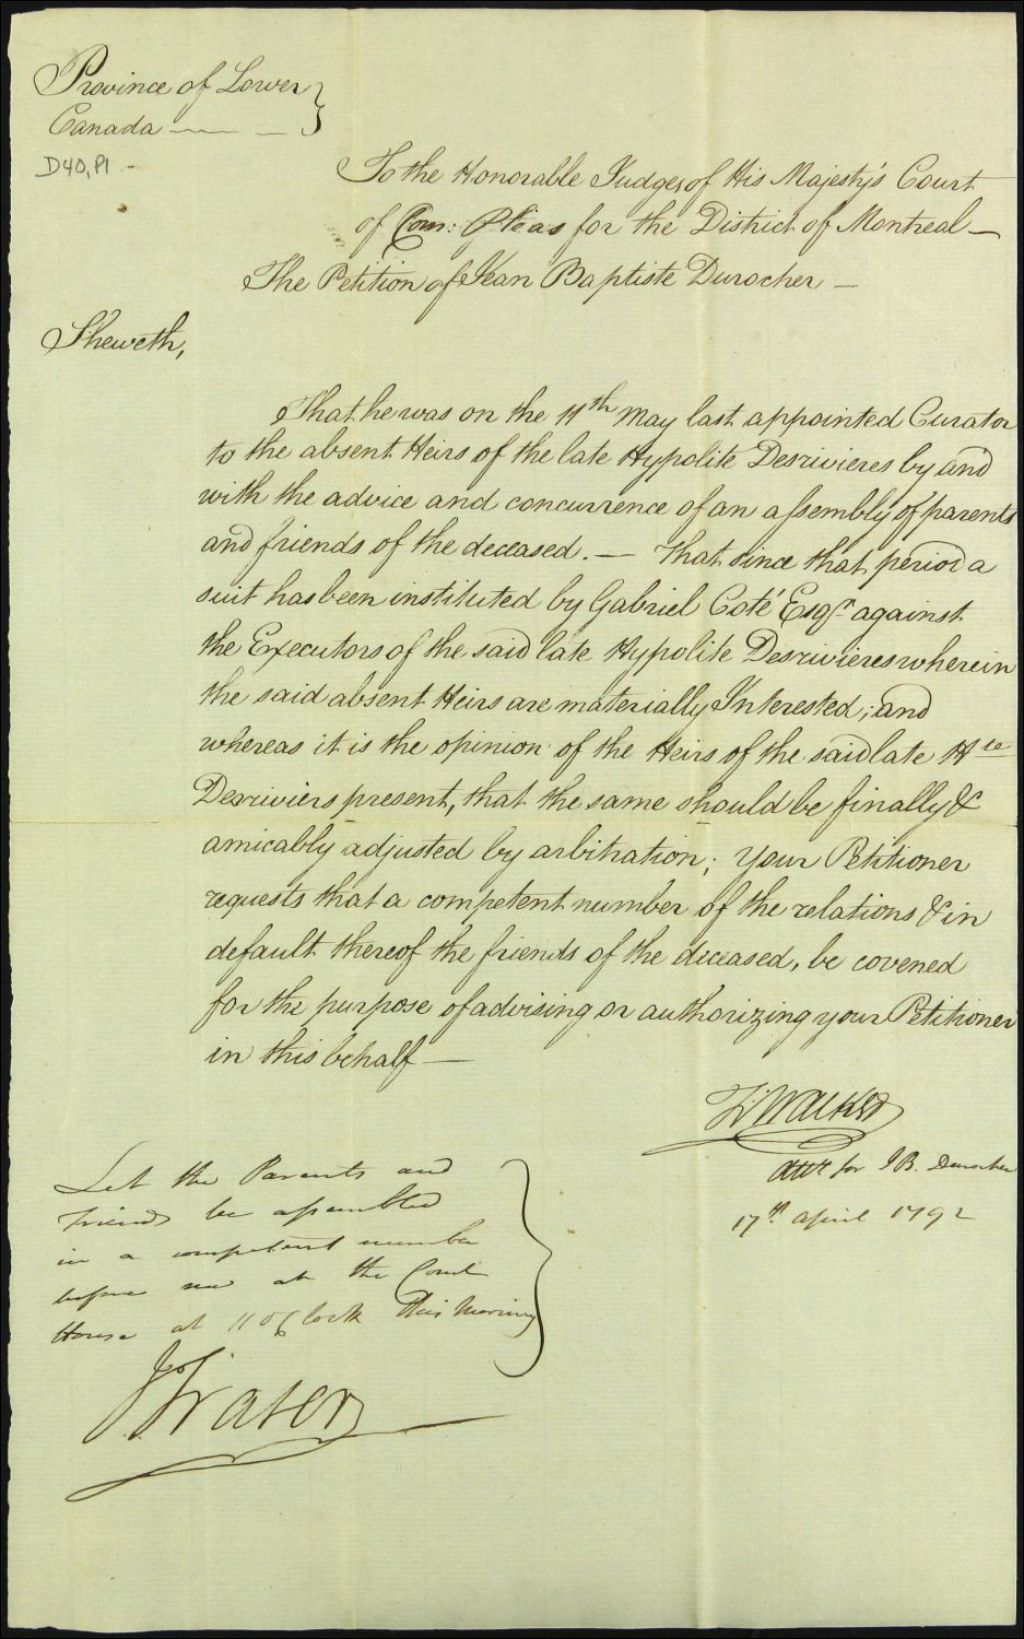 Province of Lower }
Canada — —
D40, P1 -
To the Honorable Judges of His Majesty's Court
of Com: Pleas for the District of Montreal —
The Petition of Jean Baptiste Durocher —
Sheweth,
That he was on the 11th May last appointed Curator
to the absent Heirs of the late Hypolite Desrivieres by and
with the advice and concurrence of an assembly of parents
and friends of the deceased. — That since that period a
suit has been instituted by Gabriel Coté Esqr against
the Executors of the said late Hypolite Desrivieres wherein
the said absent Heirs are materially Interested; and
whereas it is the opinion of the Heirs of the said late Hte
Desriviers present, that the same should be finally &
amicably adjusted by arbitration; Your Petitioner
requests that a competent number of the relations & in
default thereof the friends of the deceased, be covened
for the purpose of advising or authorizing your Petitioner
in this behalf —
Walker
Atty for J B. Durocher
17th April 1792
Let the Parents and
friends be assembled
in a competent number
before me at the Court
House at 11 oClock this Morning
J Fraser